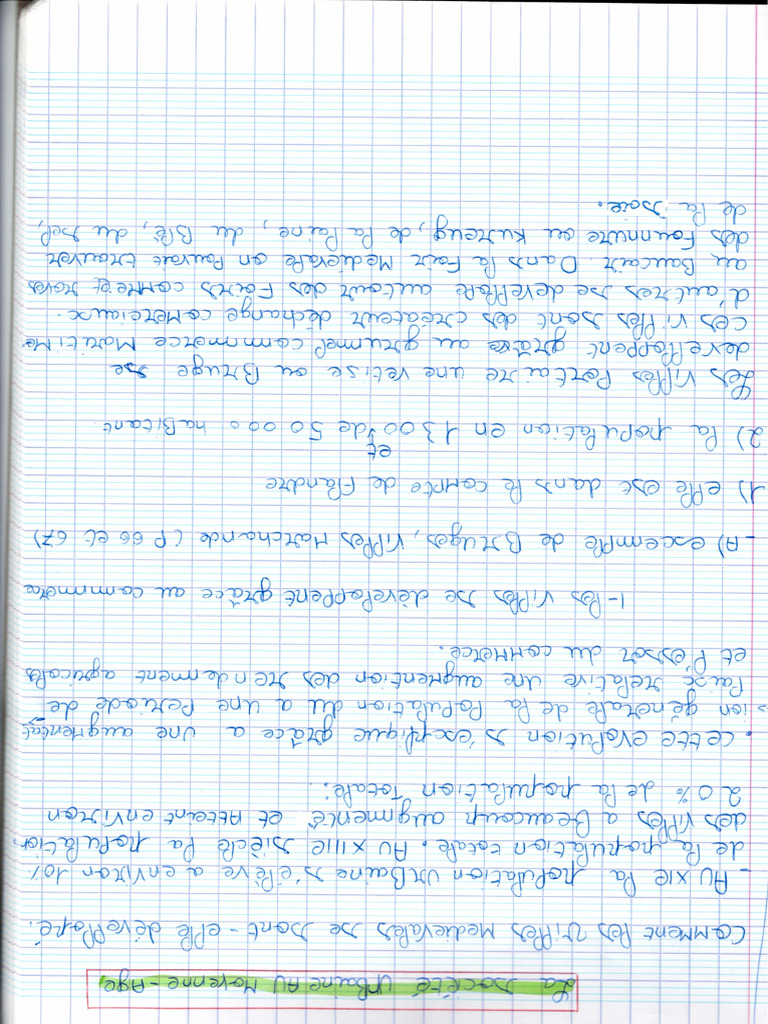 La société urbaine AU Moyenne-Age.
Comment les villes Medievales se sont-elle développé.
- AU XIe la population urBaine s'élève a environ 10%
de la population totale. AU XIIIe siècle la population
des villes a Beaucoup augmenté, et Atteint environ
20% de la population Totale.
. cette evolution s'éxsplique grâce a une augmentat-
ion génerale de la Population du a une Periode de
Paix relative une augmention des rendemment agricoles
et l'essor du commerce.
1- les villes se dèveloppent grâce au commerce
- A) escemple de Bruges, villes Marchande (P 66 et 67)
1) elle est dans le compte de Flandre
2) la population en 1300 et de 50 000 haBitant
Les villes Portaire une vetise ou Bruge se
developpent grâce au grumel commerce Maritime
ces villes sont des créateur déchange comerciaux.
d'autres se developpe autour des Foirs comme troyes
au Baucair. Dans la Foir Medievale on Pouvait trouver
des Fourrure de la laine, du Blé, du sel,
de la soie.